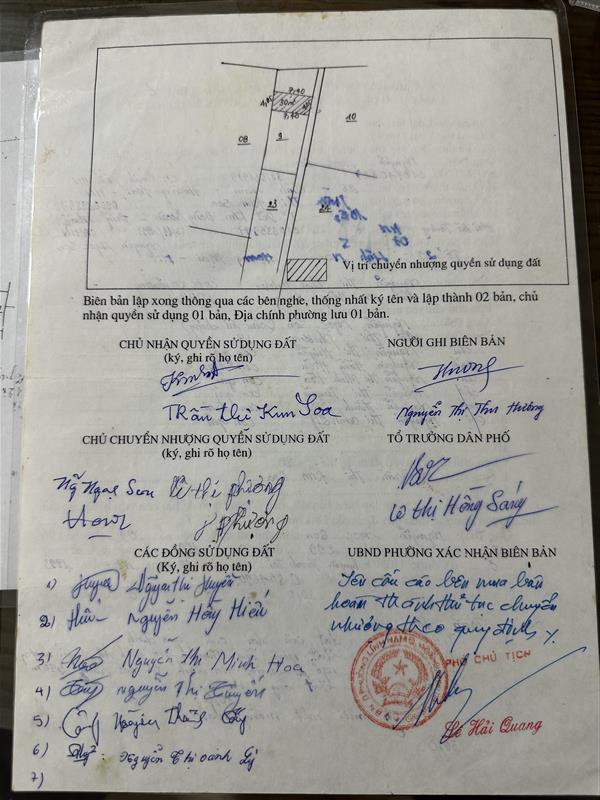 7,40
30m²
7,40
08
9
10
23
24
Vị trí chuyển nhượng quyền sử dụng đất
Biên bản lập xong thông qua các bên nghe, thống nhất ký tên và lập thành 02 bản, chủ
nhận quyền sử dụng 01 bản, Địa chính phường lưu 01 bản.
CHỦ NHẬN QUYỀN SỬ DỤNG ĐẤT
(ký, ghi rõ họ tên)
Trần Thị Kim Hoa
NGƯỜI GHI BIÊN BẢN
Hương
Nguyễn Thị Thu Hương
CHỦ CHUYỂN NHƯỢNG QUYỀN SỬ DỤNG ĐẤT
(ký, ghi rõ họ tên)
Ng Ngọc Sơn Lê thị phượng
phượng
TỔ TRƯỞNG DÂN PHỐ
thị Hồng Sáng
CÁC ĐỒNG SỬ DỤNG ĐẤT
(Ký, ghi rõ họ tên)
1) Huyền Nguyễn thị Huyền
2) Nguyễn Hồng Hiếu
3) Nguyễn Thị Minh Hoa
4) nguyễn Thị Tuyến
5) Nguyễn
6) Nguyễn Thị Oanh Lý
7)
UBND PHƯỜNG XÁC NHẬN BIÊN BẢN
Yêu cầu các bên mua bán
hoàn thành thủ tục chuyển
nhượng theo quy định
PHÓ CHỦ TỊCH
Lê Hải Quang